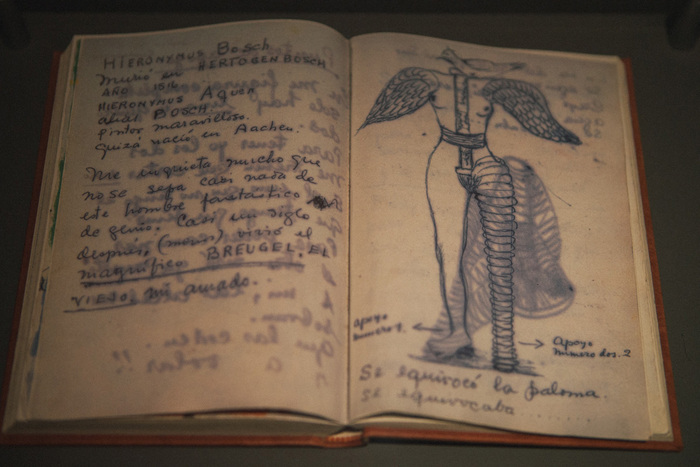 HIERÓNYMUS Bosch
Murió en HERTOGENBOSCH
AÑO 1516
HIERONYMUS AQUEN
alias BOSCH.
pintor maravilloso.
quizá nació en Aachen.
Me inquieta mucho que
no se sepa casi nada de
este hombre fantastico
de genio. Casi un siglo
después, (menos) vivió el
magnífico BREUGEL, EL
VIEJO, mi amado.
apoyo
numero 1.
Apoyo
numero dos. 2
Se equivocó la paloma.
se equivocaba ........